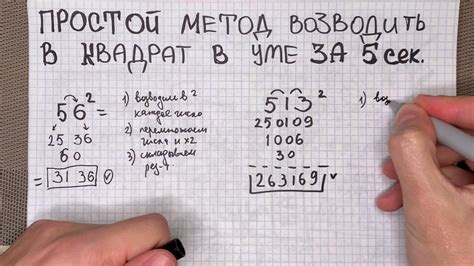 ПРОСТОЙ МЕТОД ВОЗВОДИТЬ
В КВАДРАТ В УМЕ ЗА 5 сек.
56²
25 36
60
= 3136
1) возводим в 2
каждое число
2) перемножаем
числа и х2
3) складываем
рез-т
513²
250109
1006
30
263169
1) воз